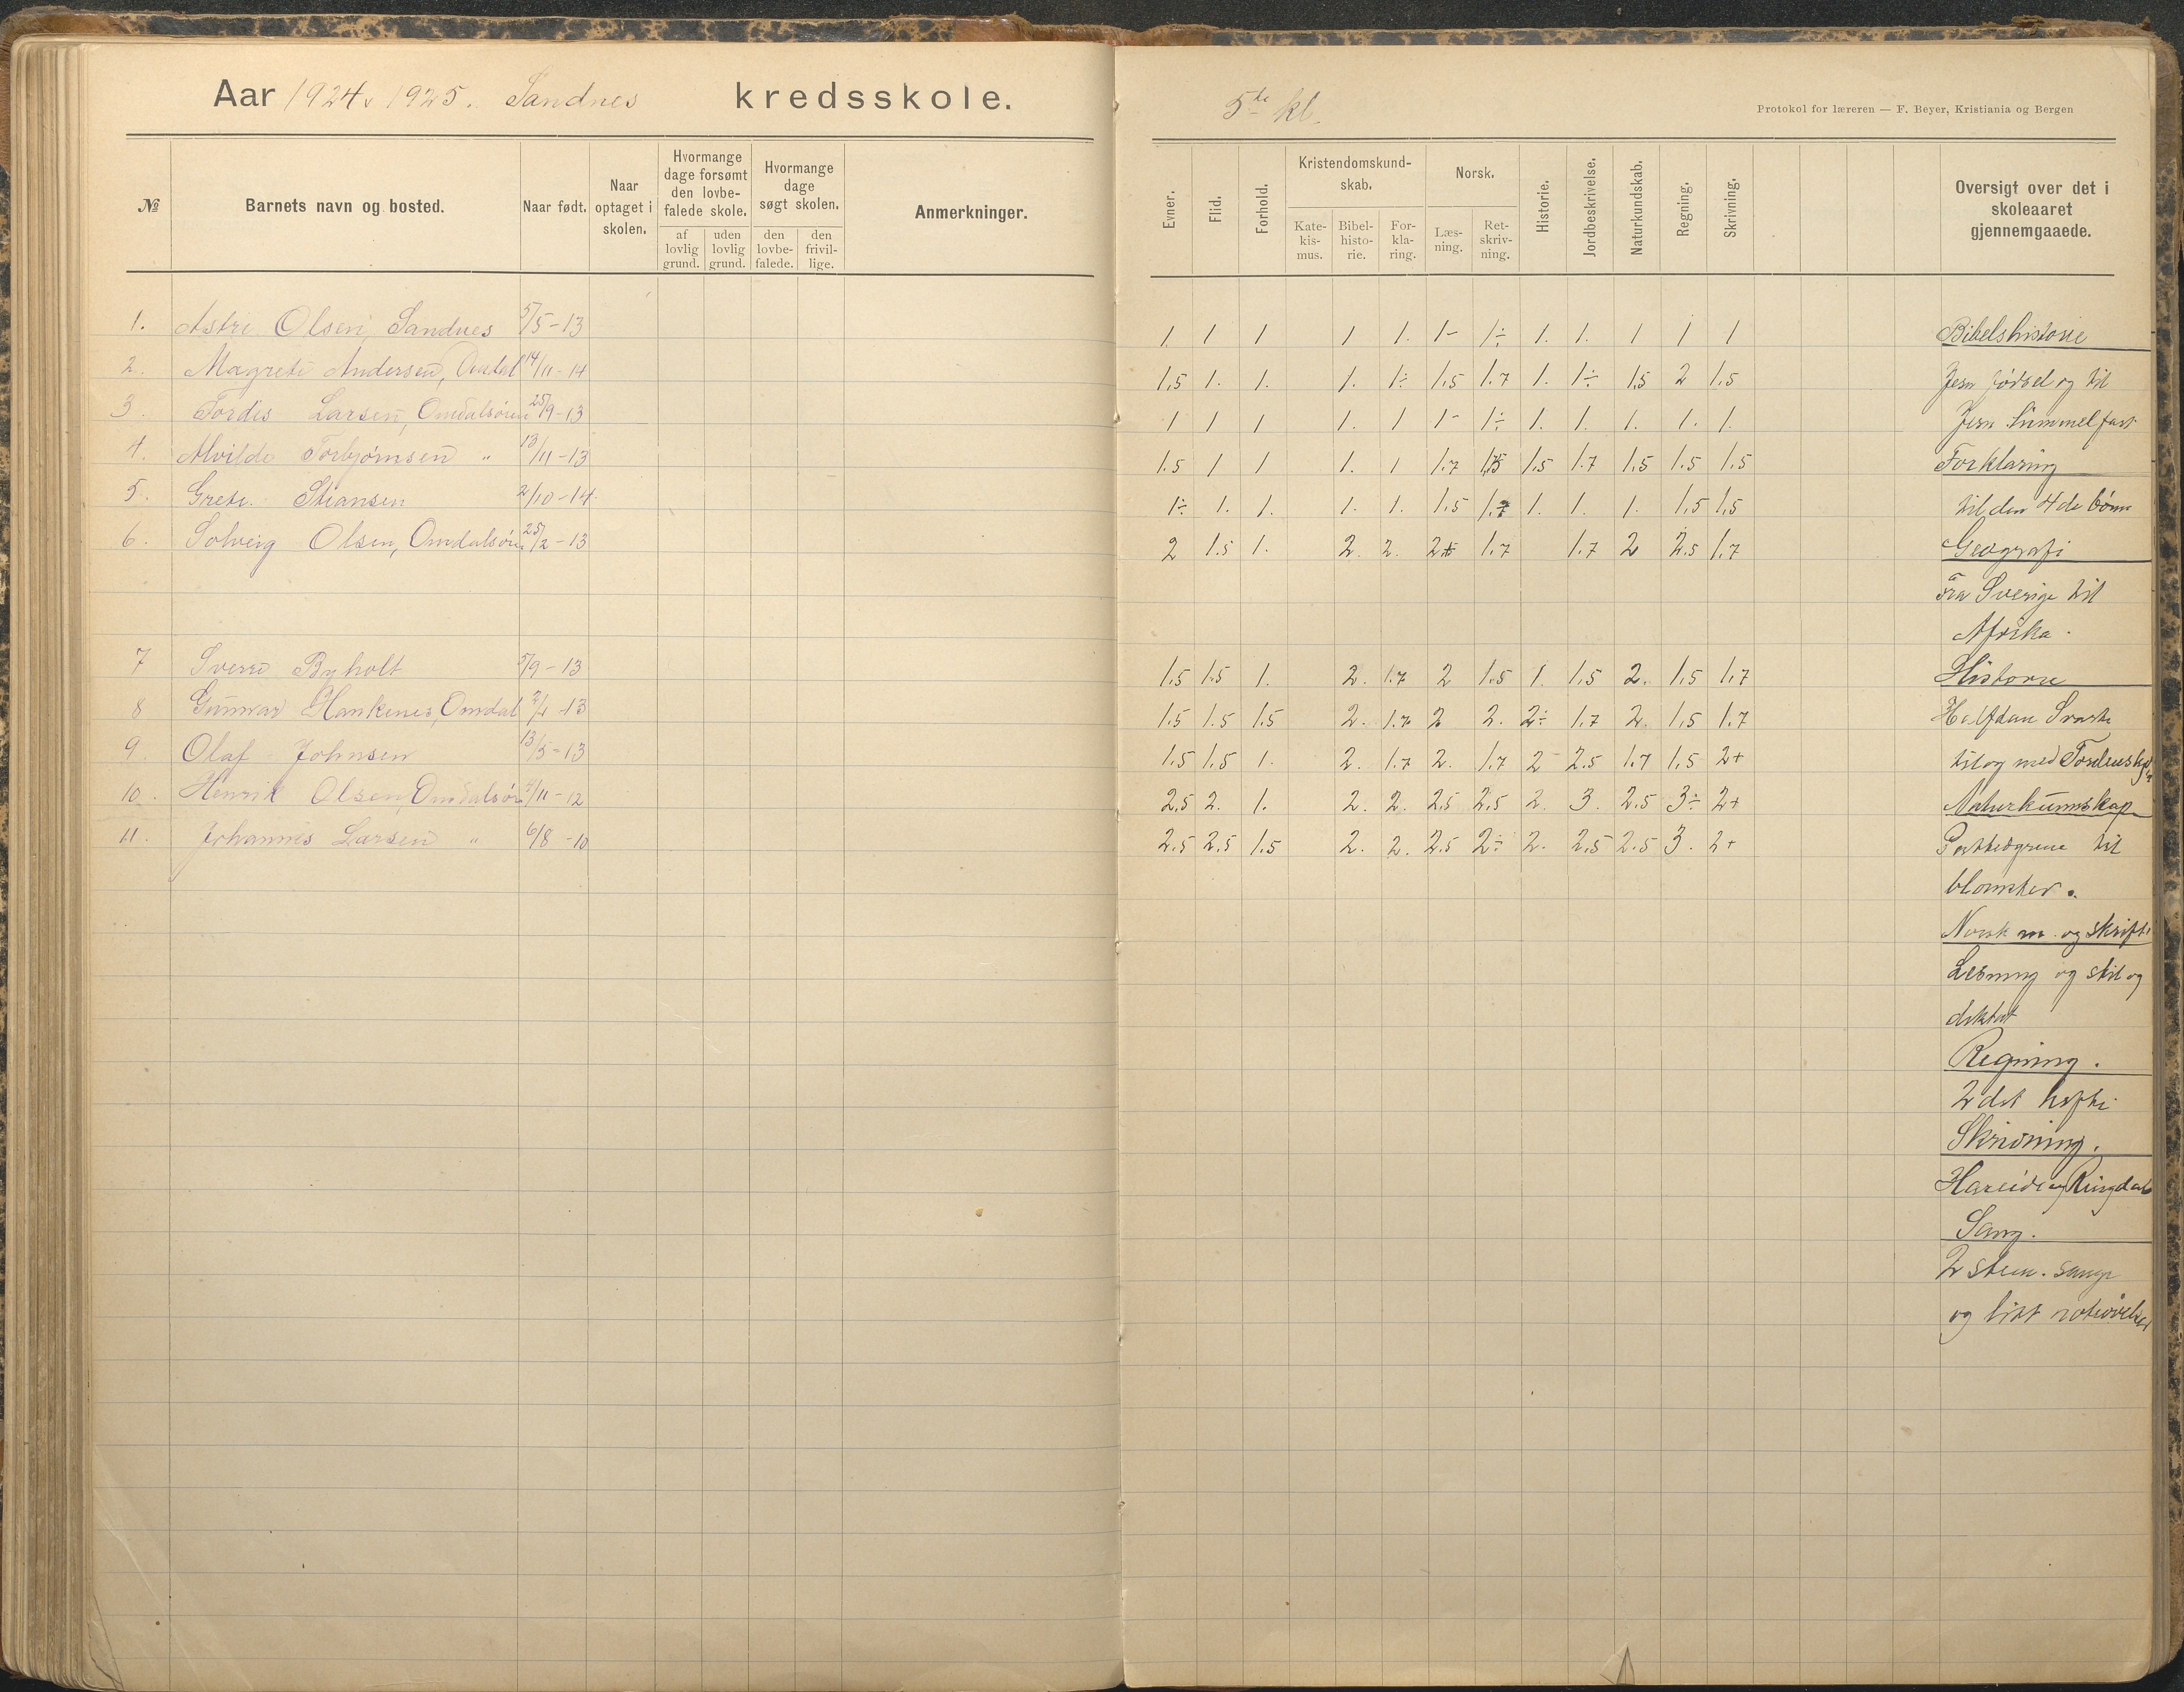 Aar 1924, 1925. Sandnes kredsskole.
5te kl.
Protokol for læreren — F. Beyer, Kristiania og Bergen
№ Barnets navn og bosted. Naar født. Naar optaget i skolen. Hvormange dage forsømt den lovbefalede skole. Hvormange dage søgt skolen. Anmerkninger.
af lovlig grund. uden lovlig grund. den lovbefalede. den frivillige.
Evner. Flid. Forhold. Kristendomskundskab. Norsk. Historie. Jordbeskrivelse. Naturkundskab. Regning. Skrivning. Oversigt over det i skoleaaret gjennemgaaede.
Katekismus. Bibelhistorie. Forklaring. Læsning. Retskrivning.
1. Astri Olsen, Sandnes 5/5-13 1 1 1 1 1. 1- 1÷ 1. 1. 1 1 1 Bibelshistorie
2. Magrete Andersen, Omdal 14/11-14 1,5 1. 1. 1. 1÷ 1,5 1.7 1. 1÷ 1,5 2 1,5 Jesu fødsel og til
3. Tordis Larsen, Omdalsøren 25/9-13 1 1 1 1. 1 1- 1÷ 1. 1. 1. 1. 1. Jesu himmelfart
4. Alvilde Torbjørnsen " 13/11-13 1.5 1 1 1. 1 1.7 1,5 1.7 1,5 1.5 1,5 Forklaring
5. Grete Stiansen 2/10-14 1÷ 1. 1. 1. 1. 1.5 1.7 1. 1. 1. 1,5 1,5 til den 4de bønn
6. Solveig Olsen, Omdalsøren 25/2-13 2 1.5 1. 2. 2. 2+ 1.7 1.7 2 2.5 1.7 Geografi
Fra Sverige til
Afrika.
7 Sverre Byholt 5/9-13 1.5 1.5 1. 2. 1.7 2 1.5 1 1,5 2. 1,5 1,7 Historie
8 Gunnar Haukenes, Omdal 1.5 1.5 1.5 2. 1.7 2 2. 2÷ 1.7 2. 1,5 1.7 Halfdan Svarte
9. Olaf Johnsen 13/5-13 1.5 1.5 1. 2. 1.7 2. 1.7 2 2.5 1.7 1.5 2+ til og med
10. Henrik Olsen, Omdalsør 2,5 2. 1. 2. 2. 2.5 2.5 2. 3. 2.5 3÷ 2+ Naturkunnskap
11. Johannes Larsen " 6/8-10 2.5 2,5 1.5 2. 2. 2.5 2÷ 2. 2,5 2.5 3. 2+ til
blomster.
Norsk m. og skriftl
Lesning og stil og
diktat
Regning.
2det hefte
Skrivning.
Hareide og Ringdal
Sang.
2 stem. sange
og litt noteøvelser